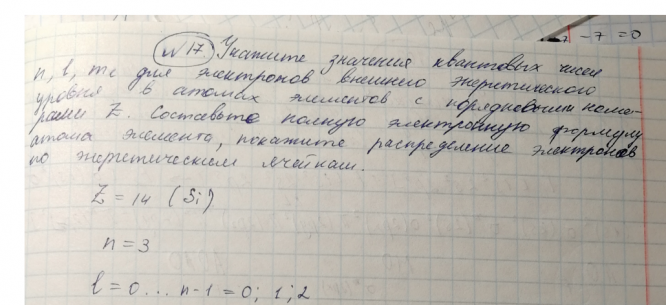 - 7 = 0
№17 Укажите значения квантовых чисел
n, l, me для электронов внешнего энергетического
уровня в атомах элементов с порядковыми номе-
рами Z. Составьте полную электронную формулу
атома элемента, покажите распределение электронов
по энергетическим ячейкам.
Z = 14 (Si)
n = 3
l = 0 ... n-1 = 0; 1; 2